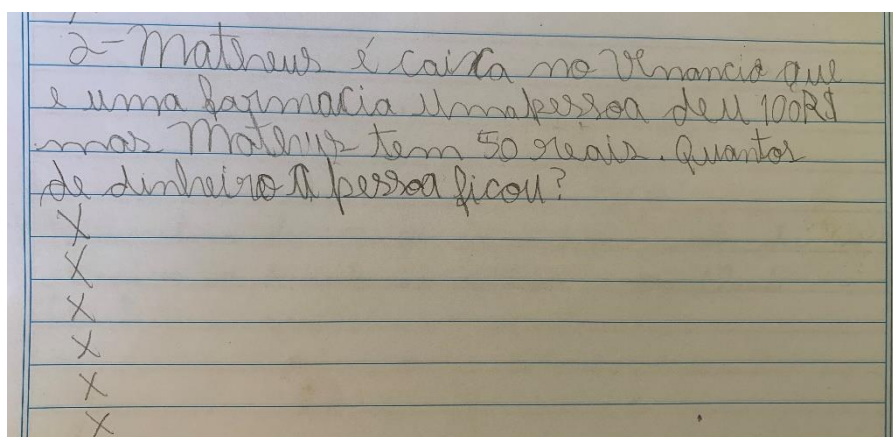 2- Matheus é caixa no Venancio que
e uma farmacia uma pessoa deu 100R$
mas Matheus tem 50 reais. Quantos
de dinheiro a pessoa ficou?
X
X
X
X
X
X